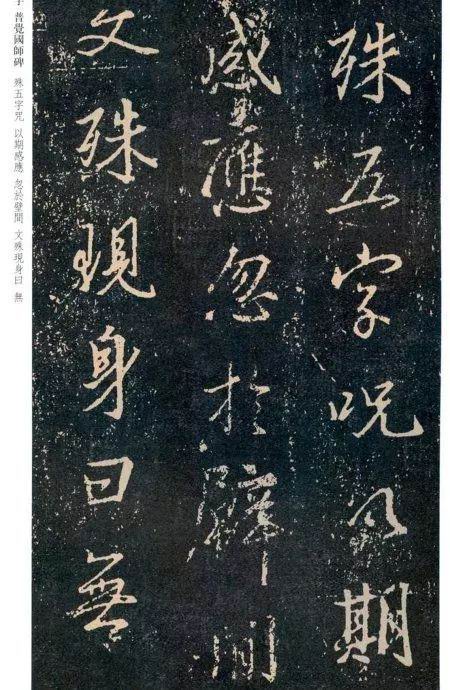 殊五字呪以期
感應忽於壁間
文殊現身曰無
字 普覺國師碑 殊五字咒 以期感應 忽於壁間 文殊現身曰 無